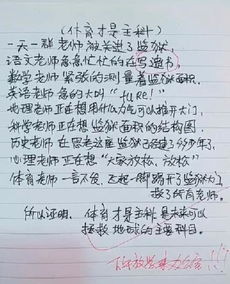 (体育才是主科)
一天一群老师被关进了监狱,
语文老师急急忙忙的在写遗书
数学老师紧张的测量着监狱面积.
英语老师急的大叫"fire!"
物理老师正在想用什么气可以推开大门,
科学老师正在想监狱面积的结构图.
历史老师在思考这监狱已经建了多少年了.
心理老师正在想"大家放松,放松"
体育老师一言不发,飞起一脚踢开了监狱大门
救了所有老师.
所以证明,体育才是主科是未来可以
拯救地球的主要科目.
下午放学来办公室!!!